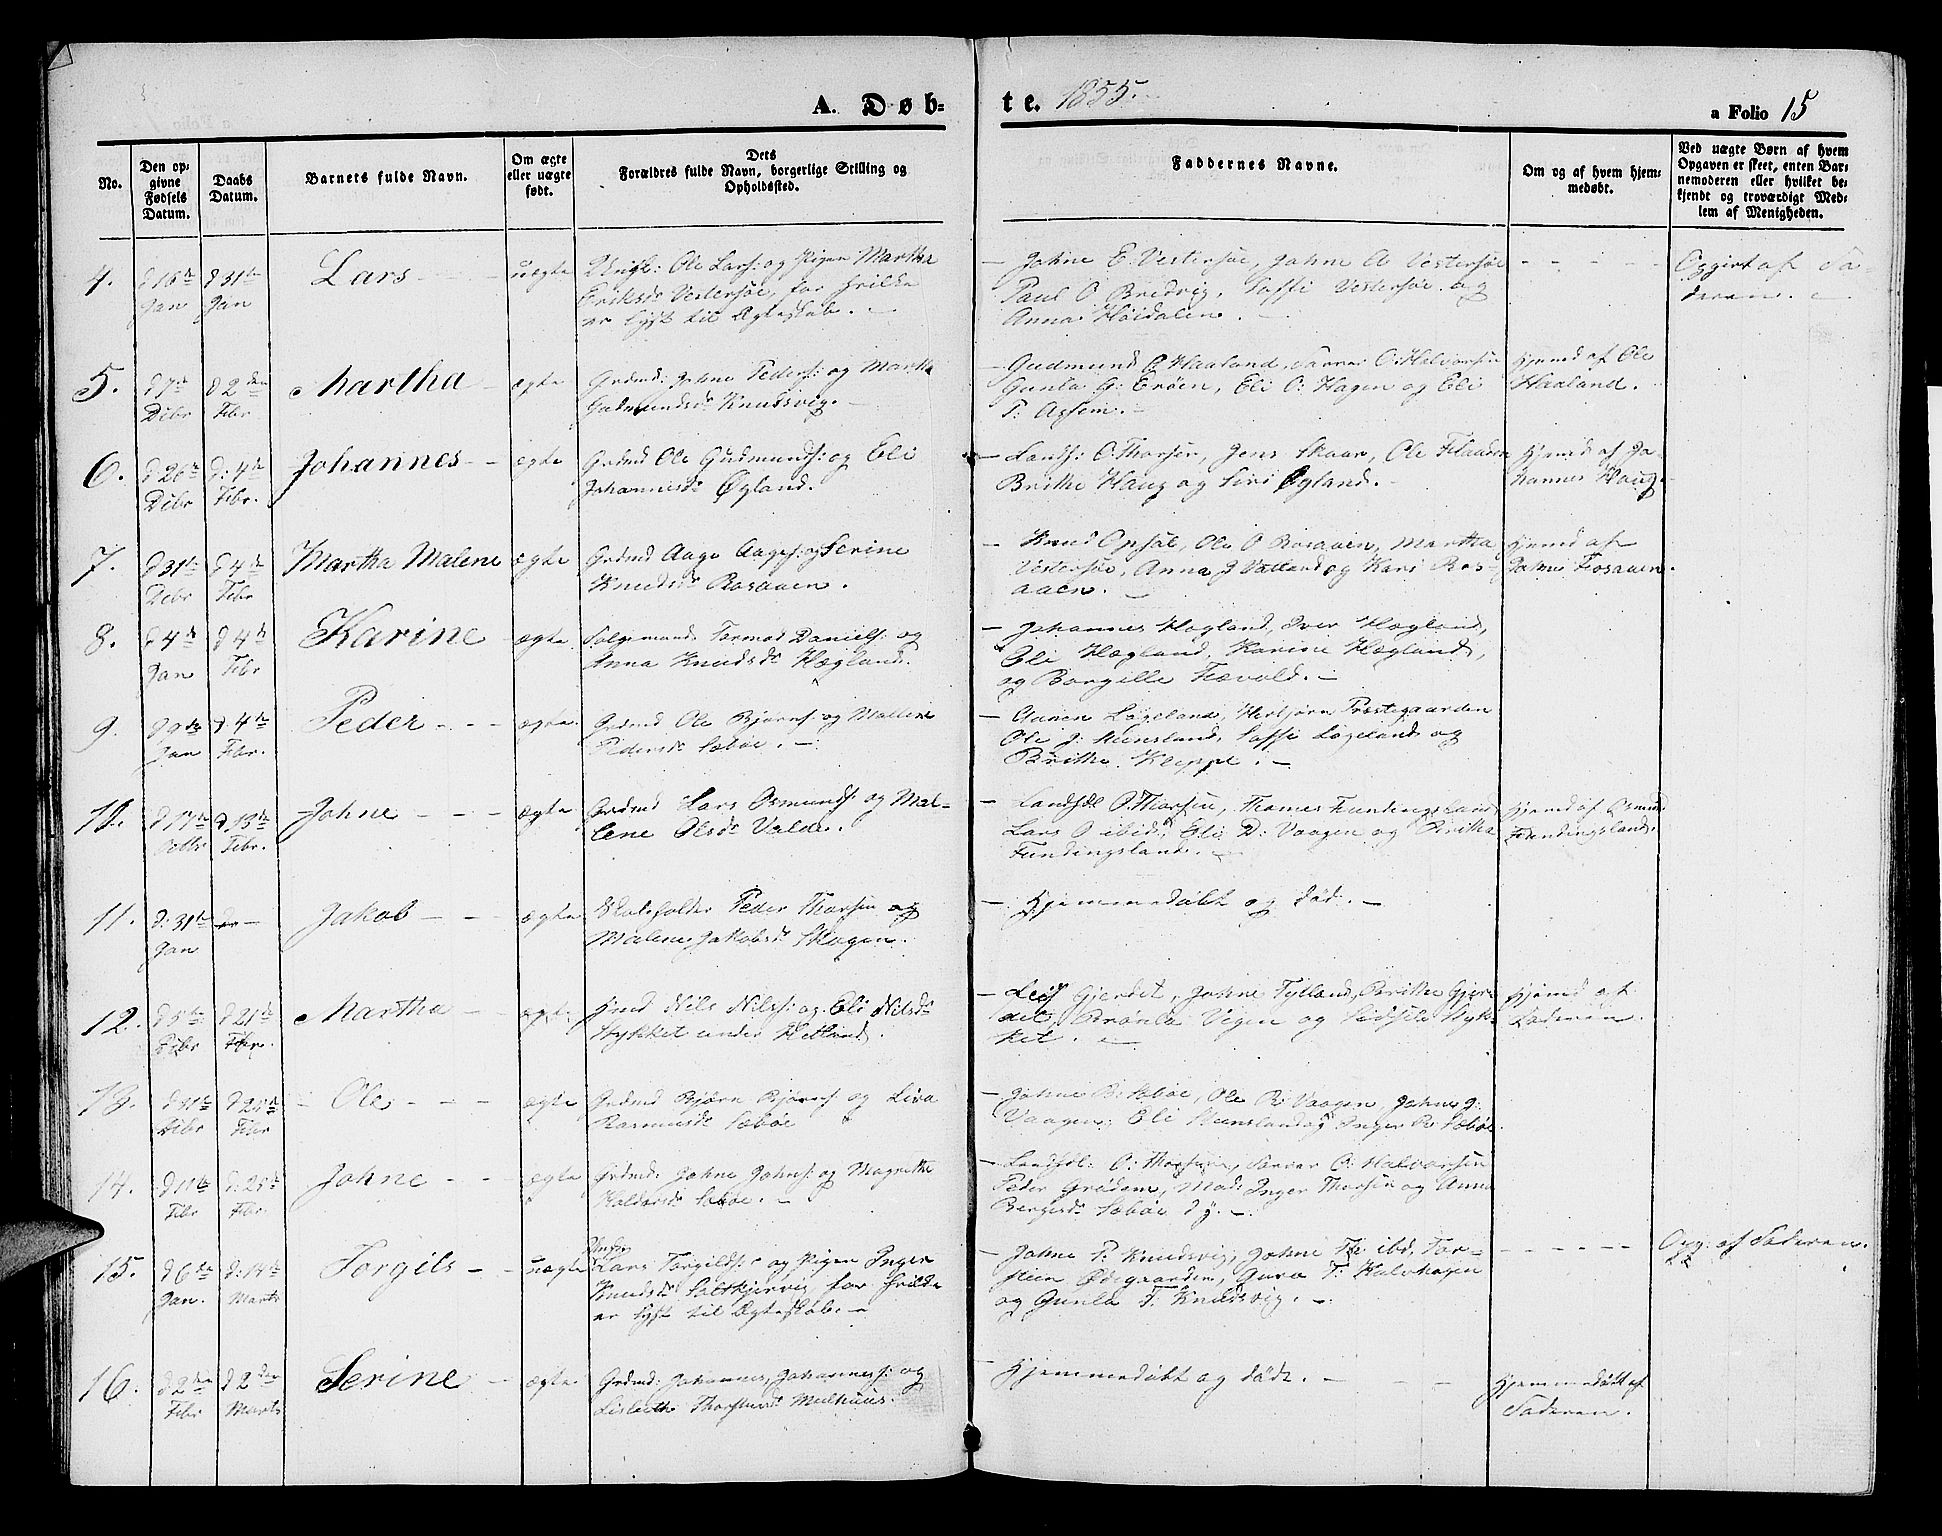 A. Døb-
te. 1855.
a Folio 15
No.
Den op-
givne
Fødsels
Datum.
Daabs
Datum.
Barnets fulde Navn.
Om ægte
eller uægte
født.
Dets
Forældres fulde Navn, borgerlige Stilling og
Opholdssted.
Faddernes Navne.
Om og af hvem hjem-
medøbt.
Ved uægte Børn af hvem
Opgaven er skeet, enten Bar-
nemoderen eller hvilket be-
kjendt og troværdigt Med-
lem af Menigheden.
4.
d 16de
Jan
d 31te
Jan
Lars
uægte
Ole Lars: og Pigen Martha
Eriksdr Vestersøe, for hvilke
er lyst til Ægteskab.
Johne E. Vestersøe, Johne A Vestersøe
Paul O. Bredvig, Vestersøe og
Anna Høidalen.
Opgivet af Fa-
deren.
5.
d 7de
Debr
d 2den
Febr
Martha
ægte
Grdmd: Johne Peders: og Martha
Gudmundsdr Knudsvig.
Gudmund Haaland, O: Halvorsen
Gunla G: Erøen, Eli O: Hagen og Eli
T: Assem.
Hjemd af Ole
Haaland.
6.
d 26de
Debr
d: 4de
Febr.
Johannes
ægte
Grdmd Ole Gudmunds: og Eli
Johannesdr Øgland.
Landh: O. Thorsen, Jens Skaar, Ole
Brithe Haug og Siri Øgland.
Hjemd af Jo-
hannes Haug.
7.
d 31te
Debr
d 4de
Febr
Martha Malene
ægte
Grdmd Aage Aages: og Serine
Knudsdr Rosaaen.
Knud Opsal, Ole O Rosaaen, Martha
Vestersøe, Anna J Valland og Kari Ros-
aaen.
Hjemd af
Johne Rosaaen.
8.
d 4de
Jan
d 4de
Febr
Karine
ægte
Tormod Daniels: og
Anna Knudsdr Hægland.
Johannes Hægland, Iver Hægland,
Eli Hægland, Karine Hægland,
og Borgille
9.
d 9de
Jan
d. 4de
Febr.
Peder
ægte.
Grdmd Ole Bjørns: og Mallene
Pedersdr Sæbøe.
Gunen Løgeland, Herbjørn Prestegaarden
Ole J: Løgeland og
Brithe Kleppe.
10.
d 17de
Octbr
d 13de
Febr.
Johne
ægte
Grdmd Lars Osmunds: og Mal-
lene Olsdr
Landh: O: Thorsen, Thomes Fundingsland
Lars O ibid, Eli D: Vaagen og Brithe
Fundingsland.
Hjemd af Osmund
Fundingsland.
11.
d: 31te
Jan
Jakob
ægte
Peder Thorsen og
Malene Jakobsdr Skogen.
Hjemmedøbt og død.
12.
d 5te
Febr
d 21de
Febr.
Martha
ægte
Nils Nils: og Eli Nilsdr
Stykket under Hetland.
Leif Gjerdet, Johne Tytland, Brithe Gjer-
det, Brønla Vegen og Stykk-
ket.
Hjemd af
Faderen.
13.
d 31te
Debr
Febr
Ole
ægte
Grdmd Bjørn Bjørns: og Liva
Rasmusdr Sæbøe
Johne B: Sæbøe, Ole R: Vaagen, Johne J:
Vaagen, Eli og Inger R: Sæbøe
14.
d 11te
Febr
Febr.
Johne
ægte
Grdmd: Johne Johns: og Magrethe
Sæbøe.
Landh: O: Thorsen, O: Halvorsen
Peder Grødem, Mad: Inger Thorsen og Anna
Bergesdr Sæbøe
15.
d 6de
Jan.
d: 14de
Marts
Torgils
uægte
Lars Torgilds: og Pigen Inger
Knudsdr Saltskjervig for hvilke
er lyst til Ægteskab.
Johne P: Knudsvig, Johne ibd, Tor-
stein Ødegaarden, Guro T: Kalvhagen
og Gunla T: Knudsvig.
Opg: af Faderen.
16.
d 2den
Febr
d 2den
Marts
Serine
ægte
Grdmd: Johannes Johannes: og
Lisbeth Thorsteensdr Mælhuus.
Hjemmedøbt og død.
Hjemmedøbt af
Faderen.